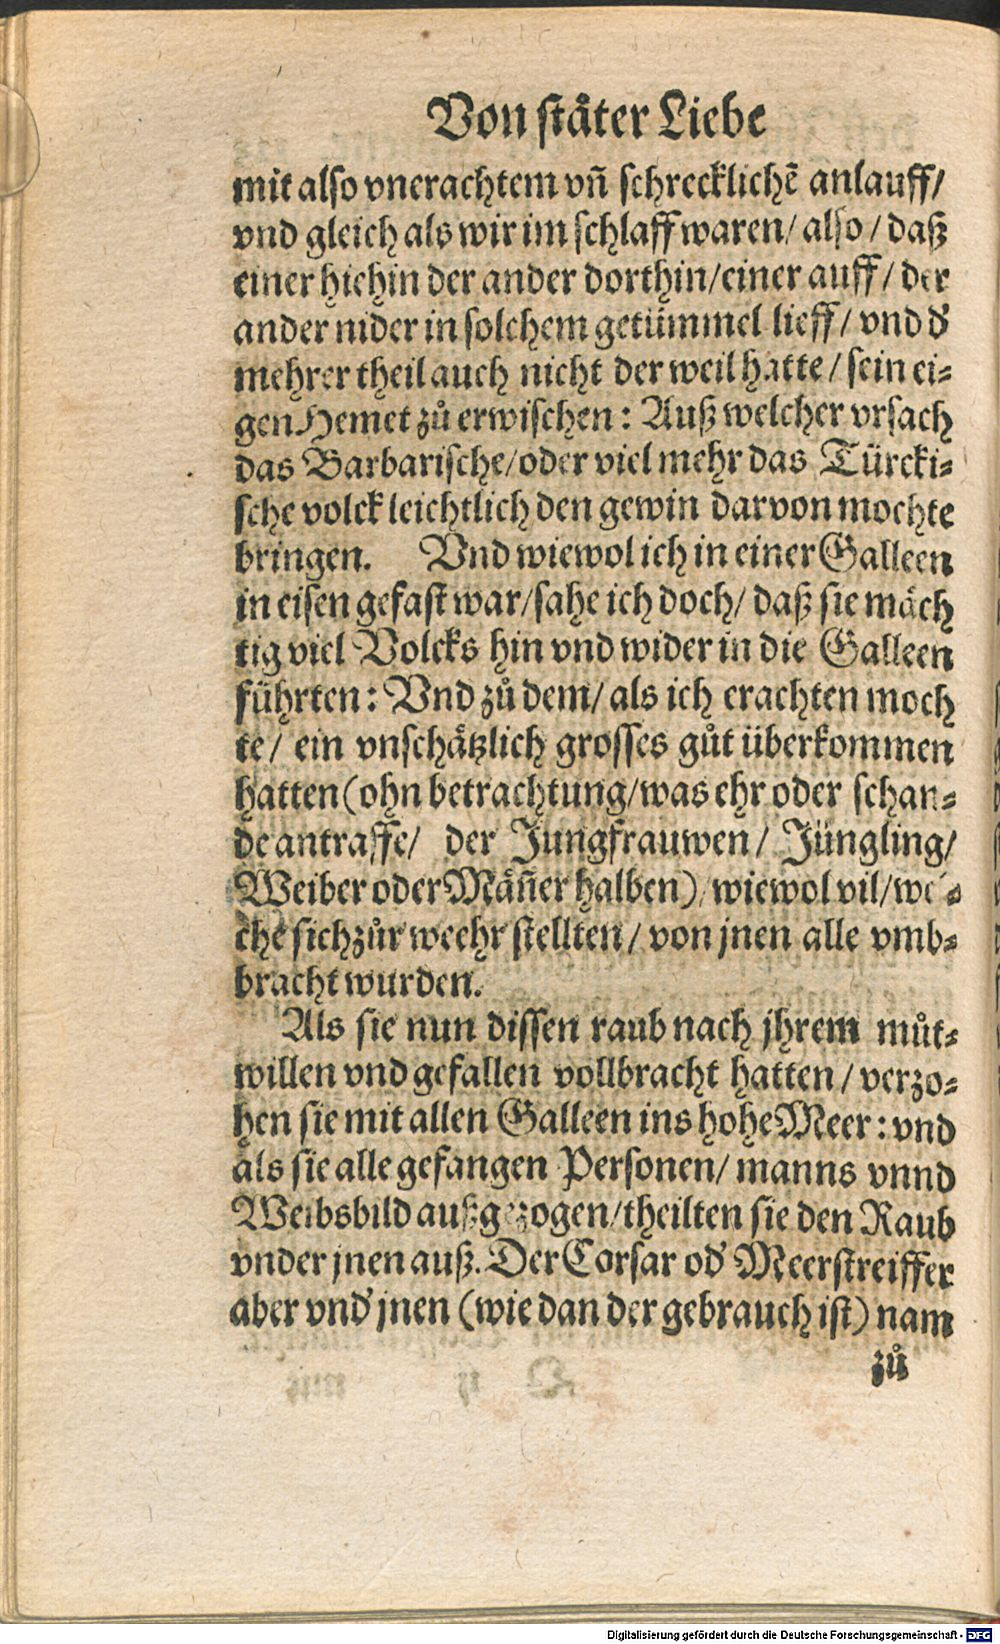 Von ſtåter Liebe
mit alſo vnerachtem vñ ſchrecklichẽ anlauff/
vnd gleich als wir im ſchlaff waren/ alſo/ daß
einer hiehin der ander dorthin/einer auff/ der
ander nider in ſolchem getümmel lieff/ vnd d'
mehrer theil auch nicht der weil hatte/ ſein ei⸗
gen Hemet zů erwiſchen: Auß welcher vrſach
das Barbariſche/oder viel mehr das Türcki⸗
ſche volck leichtlich den gewin darvon mochte
bringen. Vnd wiewol ich in einer Galleen
in eiſen gefaſt war/ſahe ich doch/ daß ſie mäch
tig viel Volcks hin vnd wider in die Galleen
führten: Vnd zů dem/ als ich erachten moch
te/ ein vnſchåtzlich groſſes gůt überkommen
hatten (ohn betrachtung/was ehr oder ſchan⸗
de antraffe/ der Jungfrauwen/ Jüngling/
Weiber oder Mäñer halben) wiewol vil/wel⸗
che ſich zůr weehr ſtellten/ von jnen alle vmb⸗
bracht wurden.
Als ſie nun diſſen raub nach jhrem můt⸗
willen vnd gefallen vollbracht hatten/ verzo⸗
hen ſie mit allen Galleen ins hohe Meer: vnd
als ſie alle gefangen Perſonen/ manns vnnd
Weibsbild außgezogen/theilten ſie den Raub
vnder jnen auß. Der Corſar od' Meerſtreiffer
aber vnd' jnen (wie dan der gebrauch iſt) nam
zů
Digitalisierung gefördert durch die Deutsche Forschungsgemeinschaft - DFG